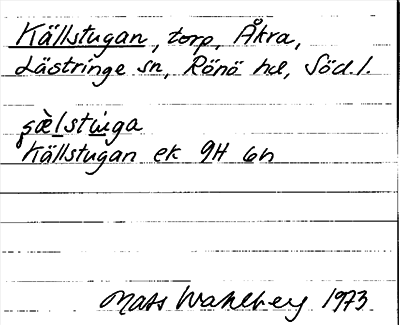 Källstugan, torp, Åkra,
Lästringe sn, Rönö hd, Söd.l.
Källstugan ek 9H 6h
Mats Wahlberg 1973